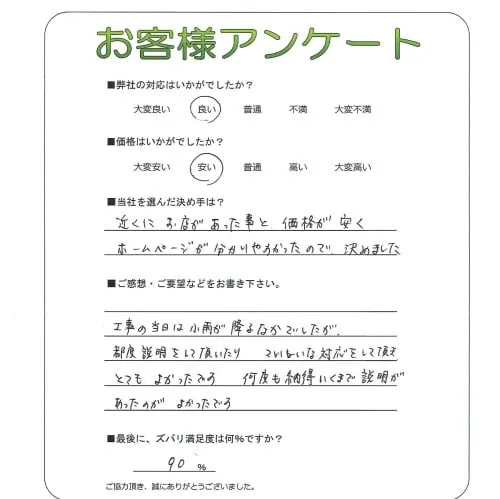 お客様アンケート
■弊社の対応はいかがでしたか？
大変良い 良い 普通 不満 大変不満
■価格はいかがでしたか？
大変安い 安い 普通 高い 大変高い
■当社を選んだ決め手は？
近くに お店があった事と、価格が 安く
ホームページが分かりやすかったので、決めました
■ご感想・ご要望などをお書き下さい。
工事の当日は小雨が降るなかでしたが、
都度説明をして頂いたり ていねいな対応をして頂き
とても よかったです 何度も納得いくまで説明が
あったのが よかったです
■最後に、ズバリ満足度は何％ですか？
90 ％
ご協力頂き、誠にありがとうございました。